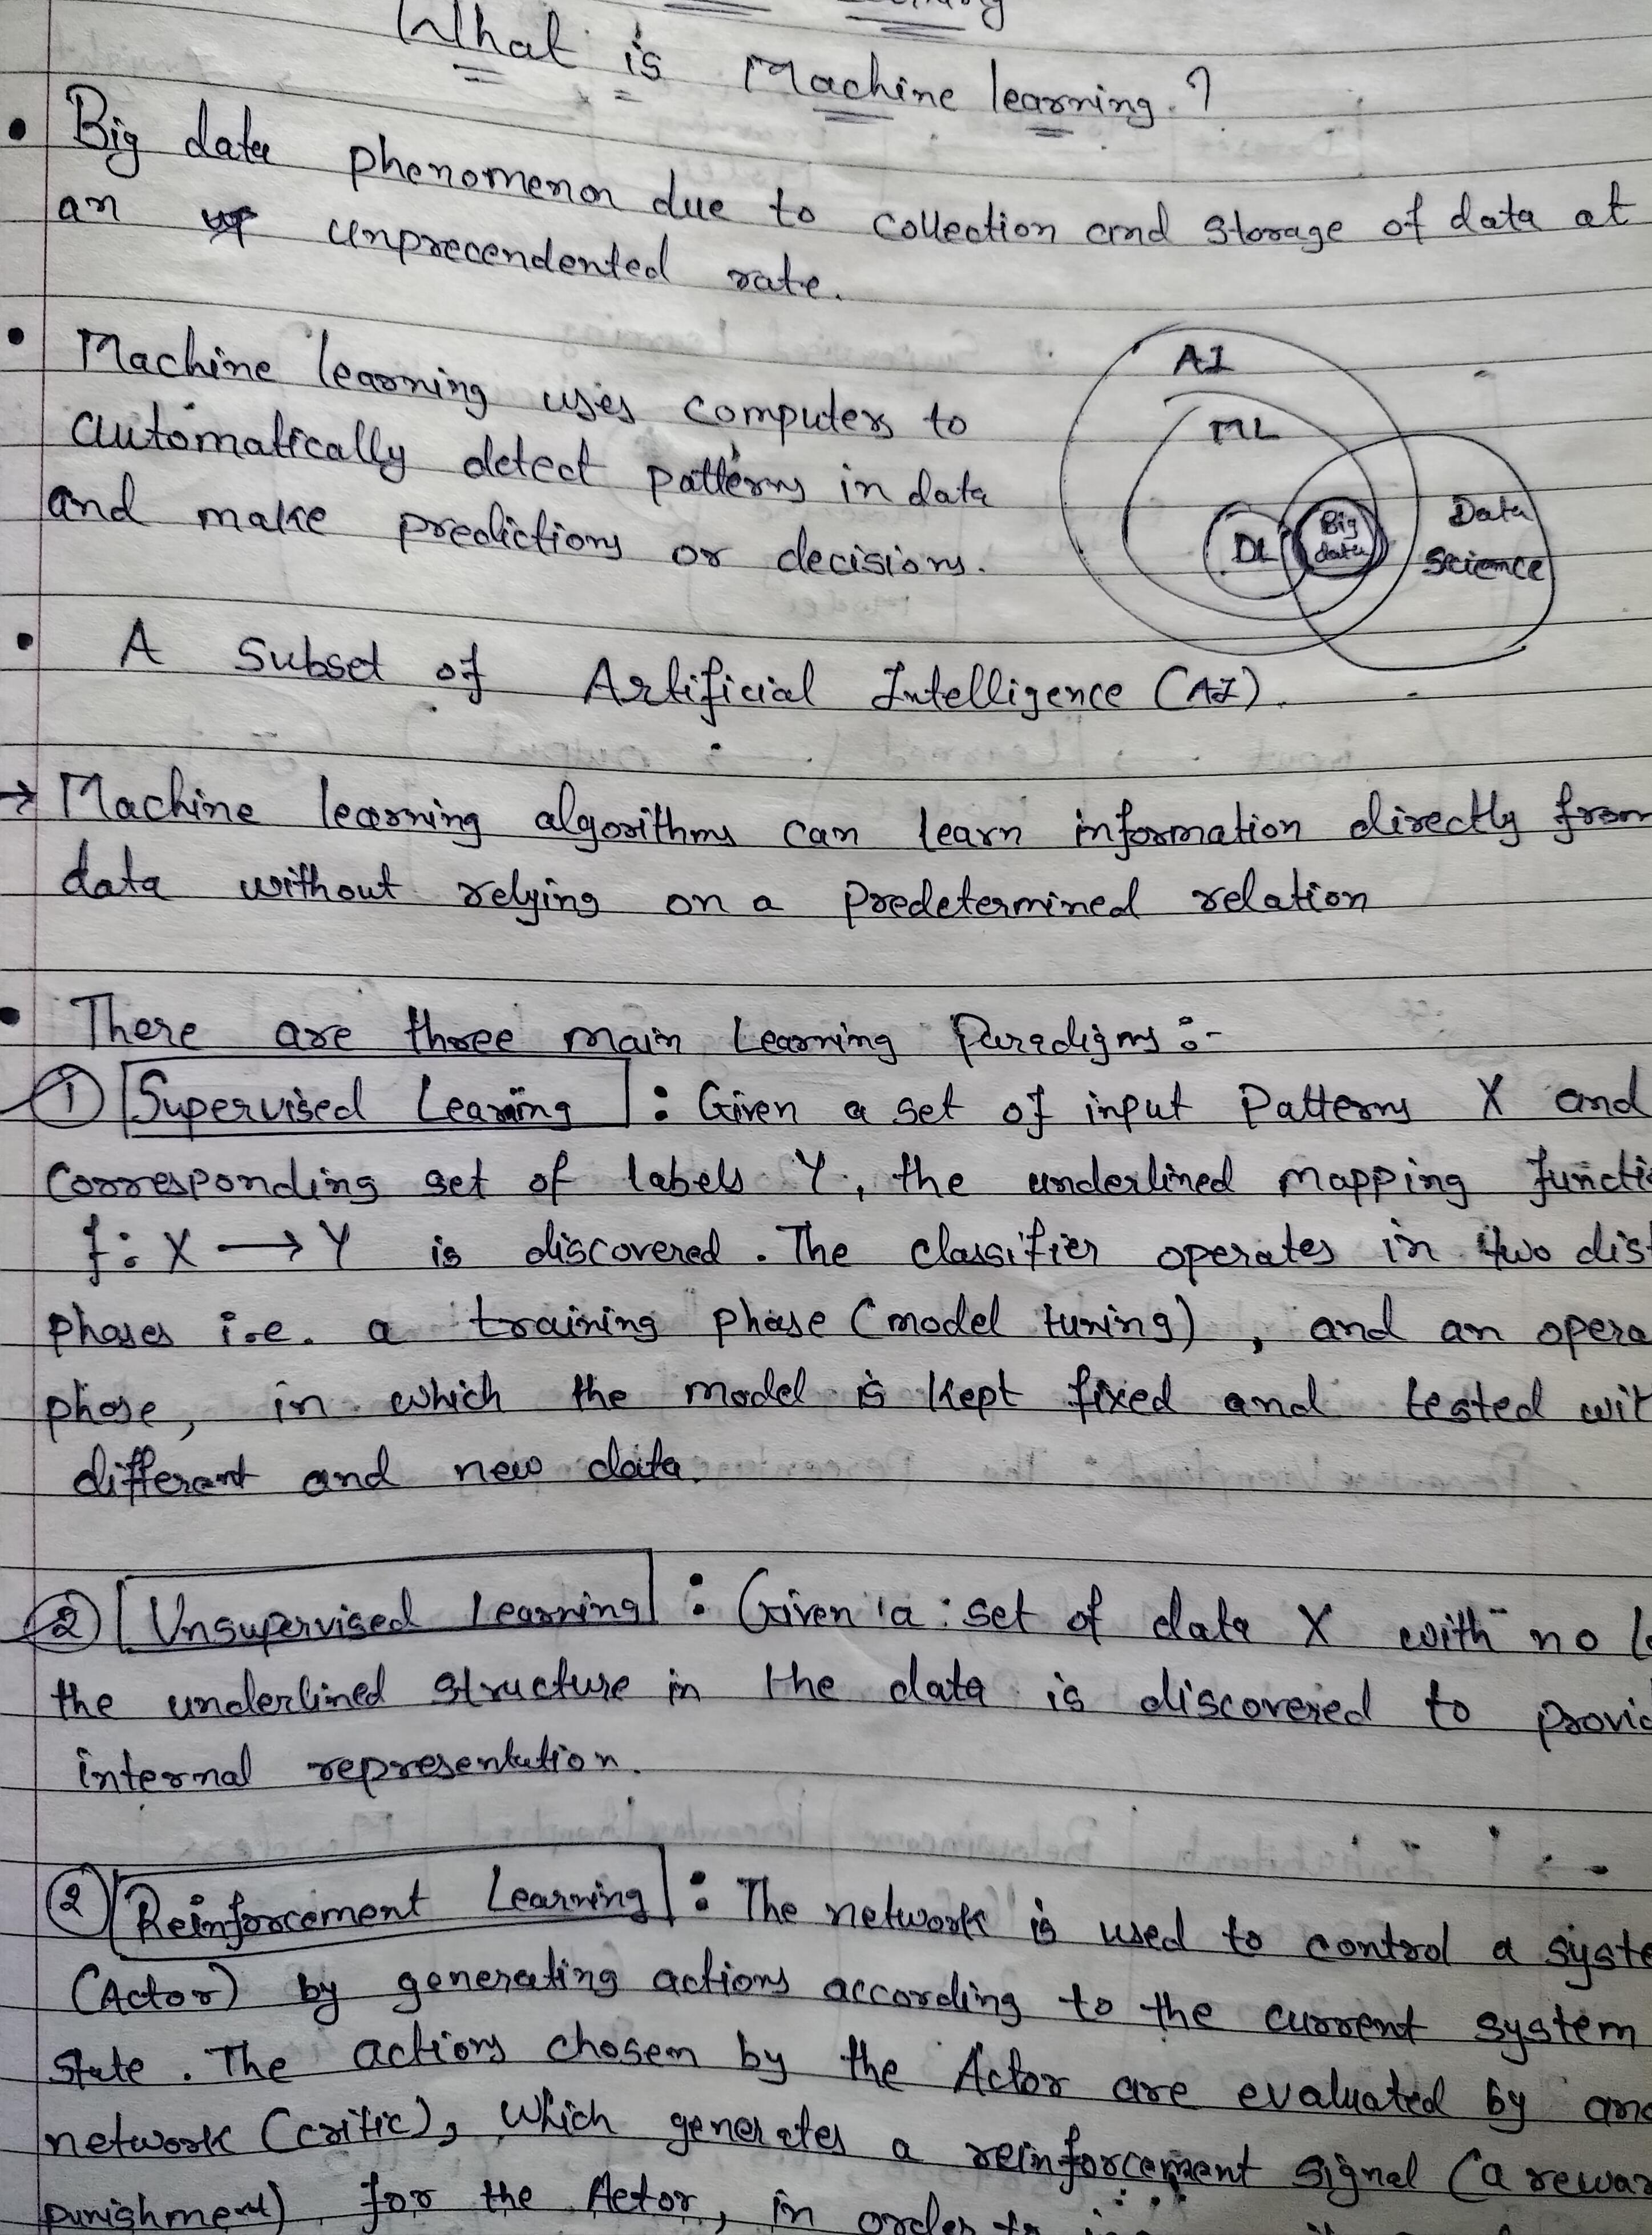 What is Machine learning ?
• Big data phenomenon due to collection and storage of data at
an unprecendented rate.
• Machine learning uses computers to
automatically detect patterns in data
and make predictions or decisions.
AI
ML
DL
Big
data
Data
Science
• A Subset of Artificial Intelligence (AI).
→ Machine learning algorithms can learn information directly from
data without relying on a predetermined relation
• There are three main Learning Paradigms :-
① Supervised Learning : Given a set of input Patterns X and
Corresponding set of labels Y, the underlined mapping functi
f : X → Y is discovered. The classifier operates in two dist
phases i.e. a training phase (model tuning), and an opera
phase, in which the model is kept fixed and tested wit
different and new data.
② Unsupervised Learning : Given a set of data X with no
the underlined structure in the data is discovered to provid
internal representation.
② Reinforcement Learning : The network is used to control a syste
(Actor) by generating actions according to the current system
state. The actions chosen by the Actor are evaluated by ano
network (critic), which generates a reinforcement signal (a rewar
punishment) for the Actor, in order to